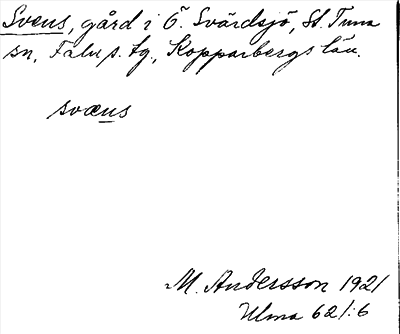 Svens, gård i Ö. Svärdsjö, St. Tuna
sn, Falu s. tg., Kopparbergs län.
svæns
M. Andersson 1921
Ulma 62/:6